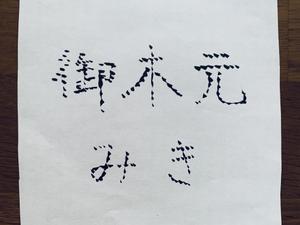 御木元
みき